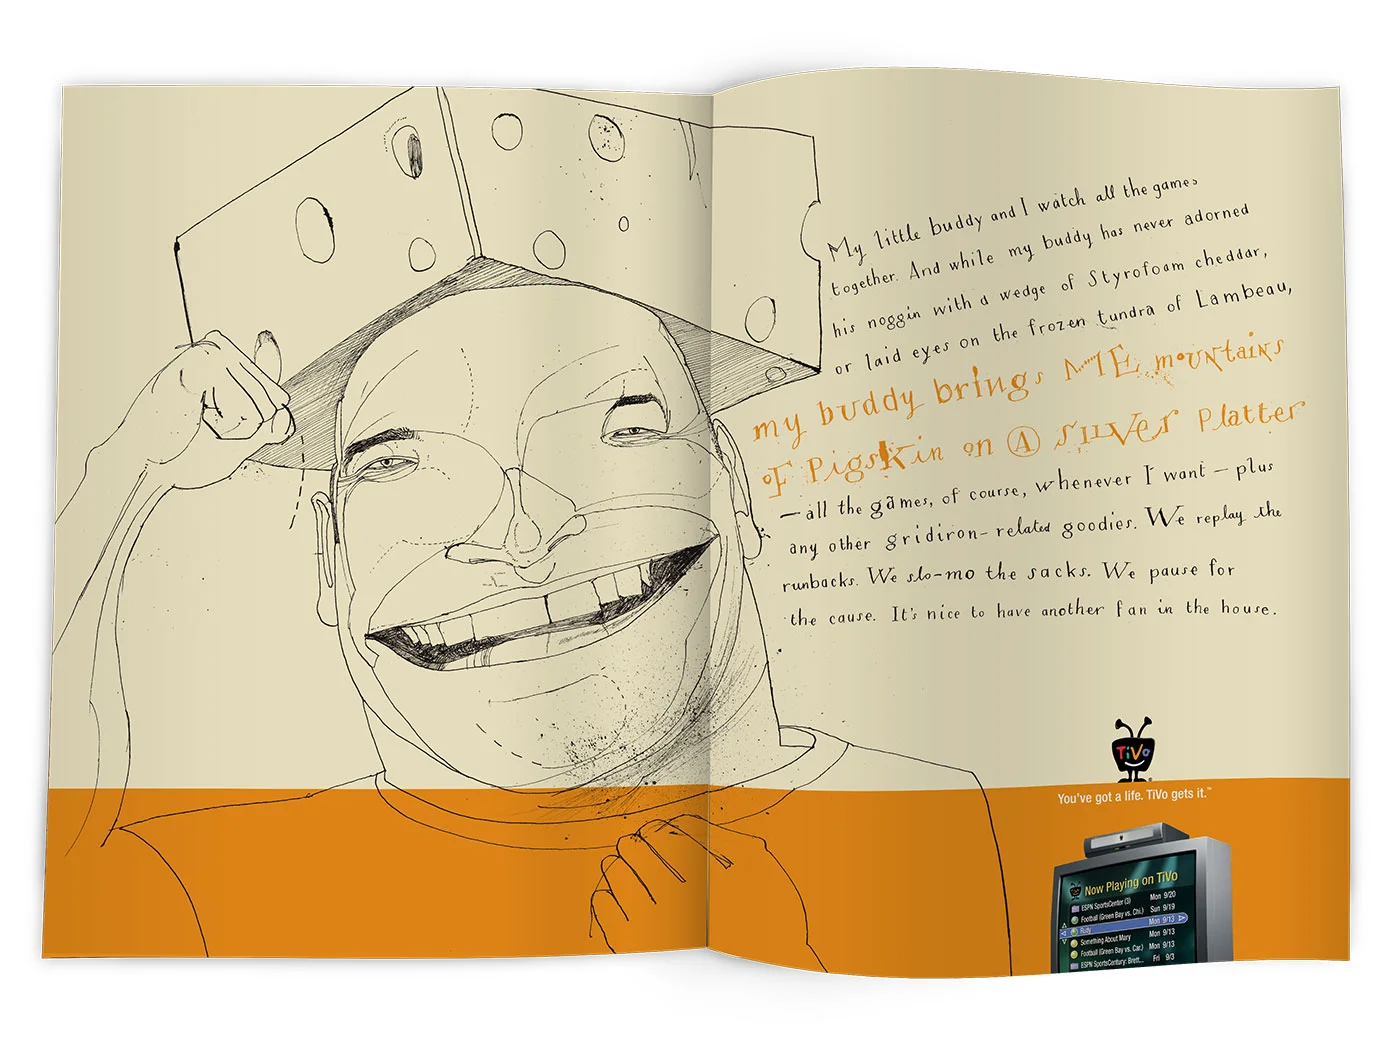 My little buddy and I watch all the games
together. And while my buddy has never adorned
his noggin with a wedge of Styrofoam cheddar,
or laid eyes on the frozen tundra of Lambeau,
my buddy brings ME mountains
of Pigskin on A silver Platter
— all the games, of course, whenever I want — plus
any other gridiron-related goodies. We replay the
runbacks. We slo-mo the sacks. We pause for
the cause. It's nice to have another fan in the house.
TiVo
You've got a life. TiVo gets it.™
Now Playing on TiVo
ESPN SportsCenter (3) Mon 9/20
Football (Green Bay vs. Chi.) Sun 9/19
Rudy Mon 9/13
Something About Mary Mon 9/13
Football (Green Bay vs. Car.) Mon 9/13
ESPN SportsCentury: Brett... Fri 9/3